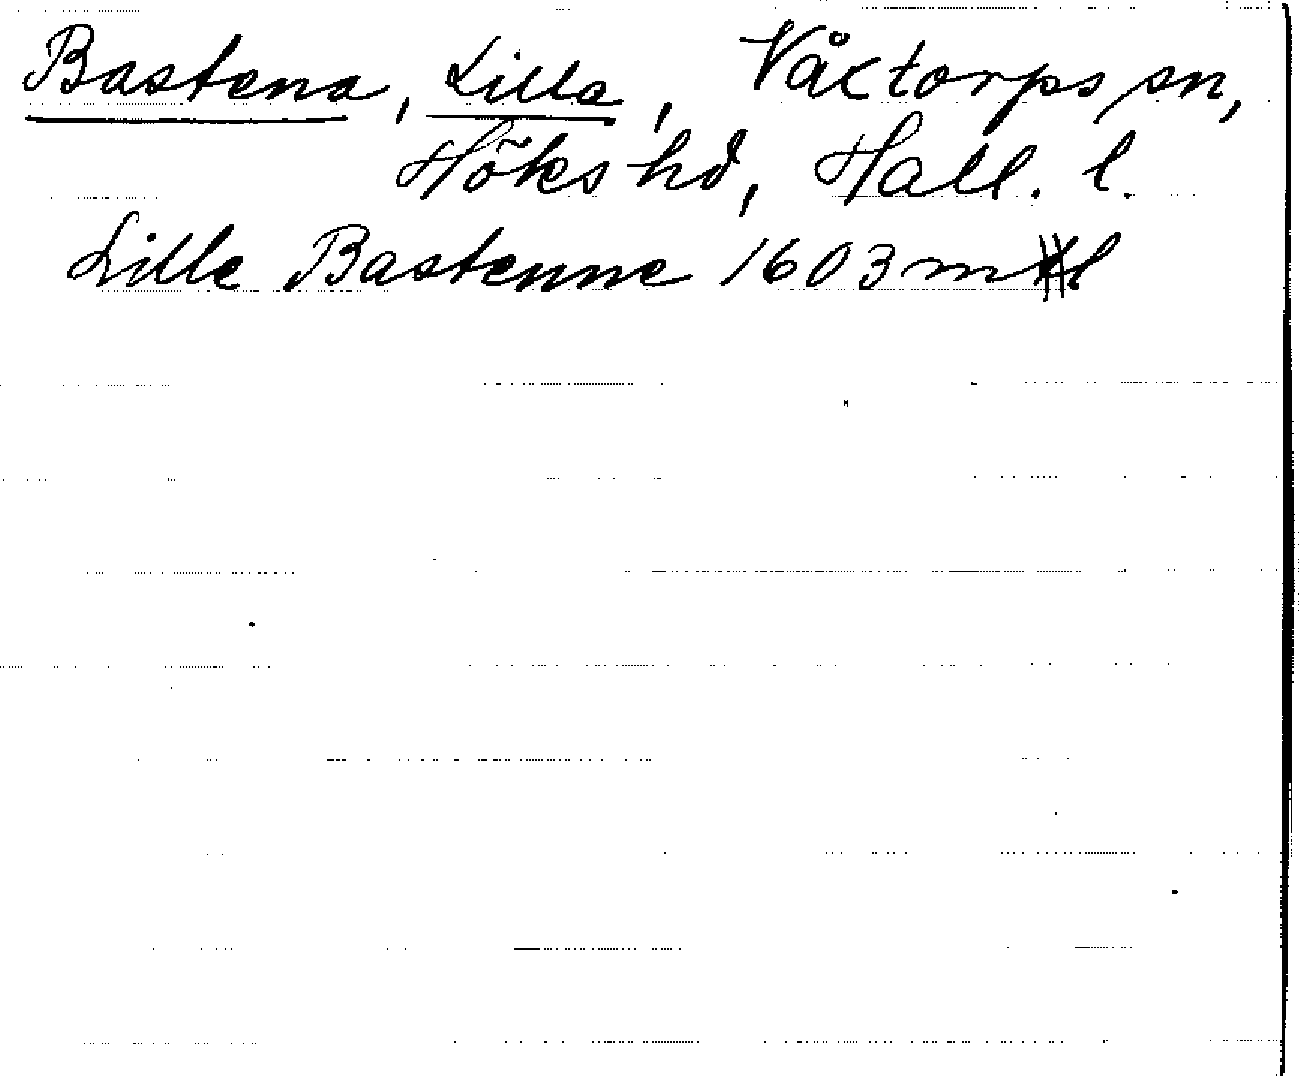 Bastena, Lilla, Våxtorps sn,
Höks hd, Hall. l.
Lille Bastenne 1603 ml